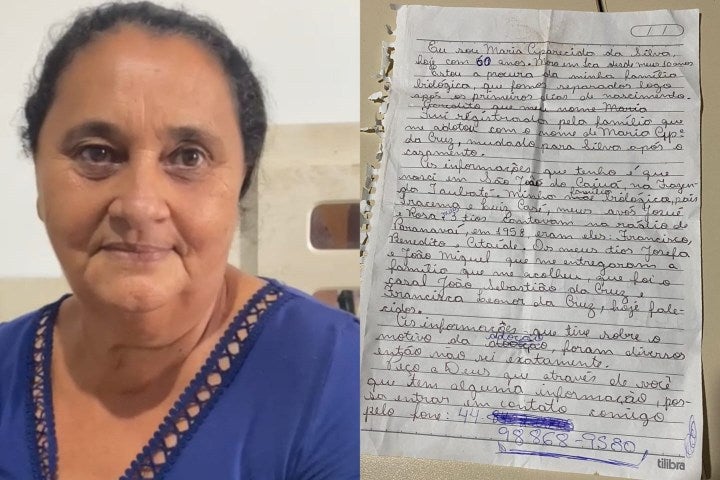 Eu sou Maria Aparecida da Silva,
hoje com 60 anos. Mora em Ica desde meus 10 anos
Estou a procura da minha família
biológica, que fomos separados logo
após os primeiros dias de nascimento.
que meu nome Maria
Fui registrada pela família que
me adotou com o nome de Maria Apª
da Cruz, mudado para Silva após o
casamento.
As informações que tenho é que
nasci em São João do Caiuá, na Fazen-
da Taubaté. Minha família biológica, pais
Iracema e Luiz José, meus avós Josué
e Rosa. 3 tios cantavam na rádio de
Paranavaí, em 1958, eram eles: Francisco,
Benedito e Os meus tios Josefa
e João Miguel que me entregaram a
família que me acolheu que foi o
casal João Sebastião da Cruz e
Francisca Leonor da Cruz, hoje fale-
cidos.
As informações que tive sobre o
motivo da adoção, foram diversos
então não sei exatamente.
Peço a Deus que através de você
que tem alguma informação, pos-
sa entrar em contato comigo
pelo fone: 44-
98868-9580
tilibra